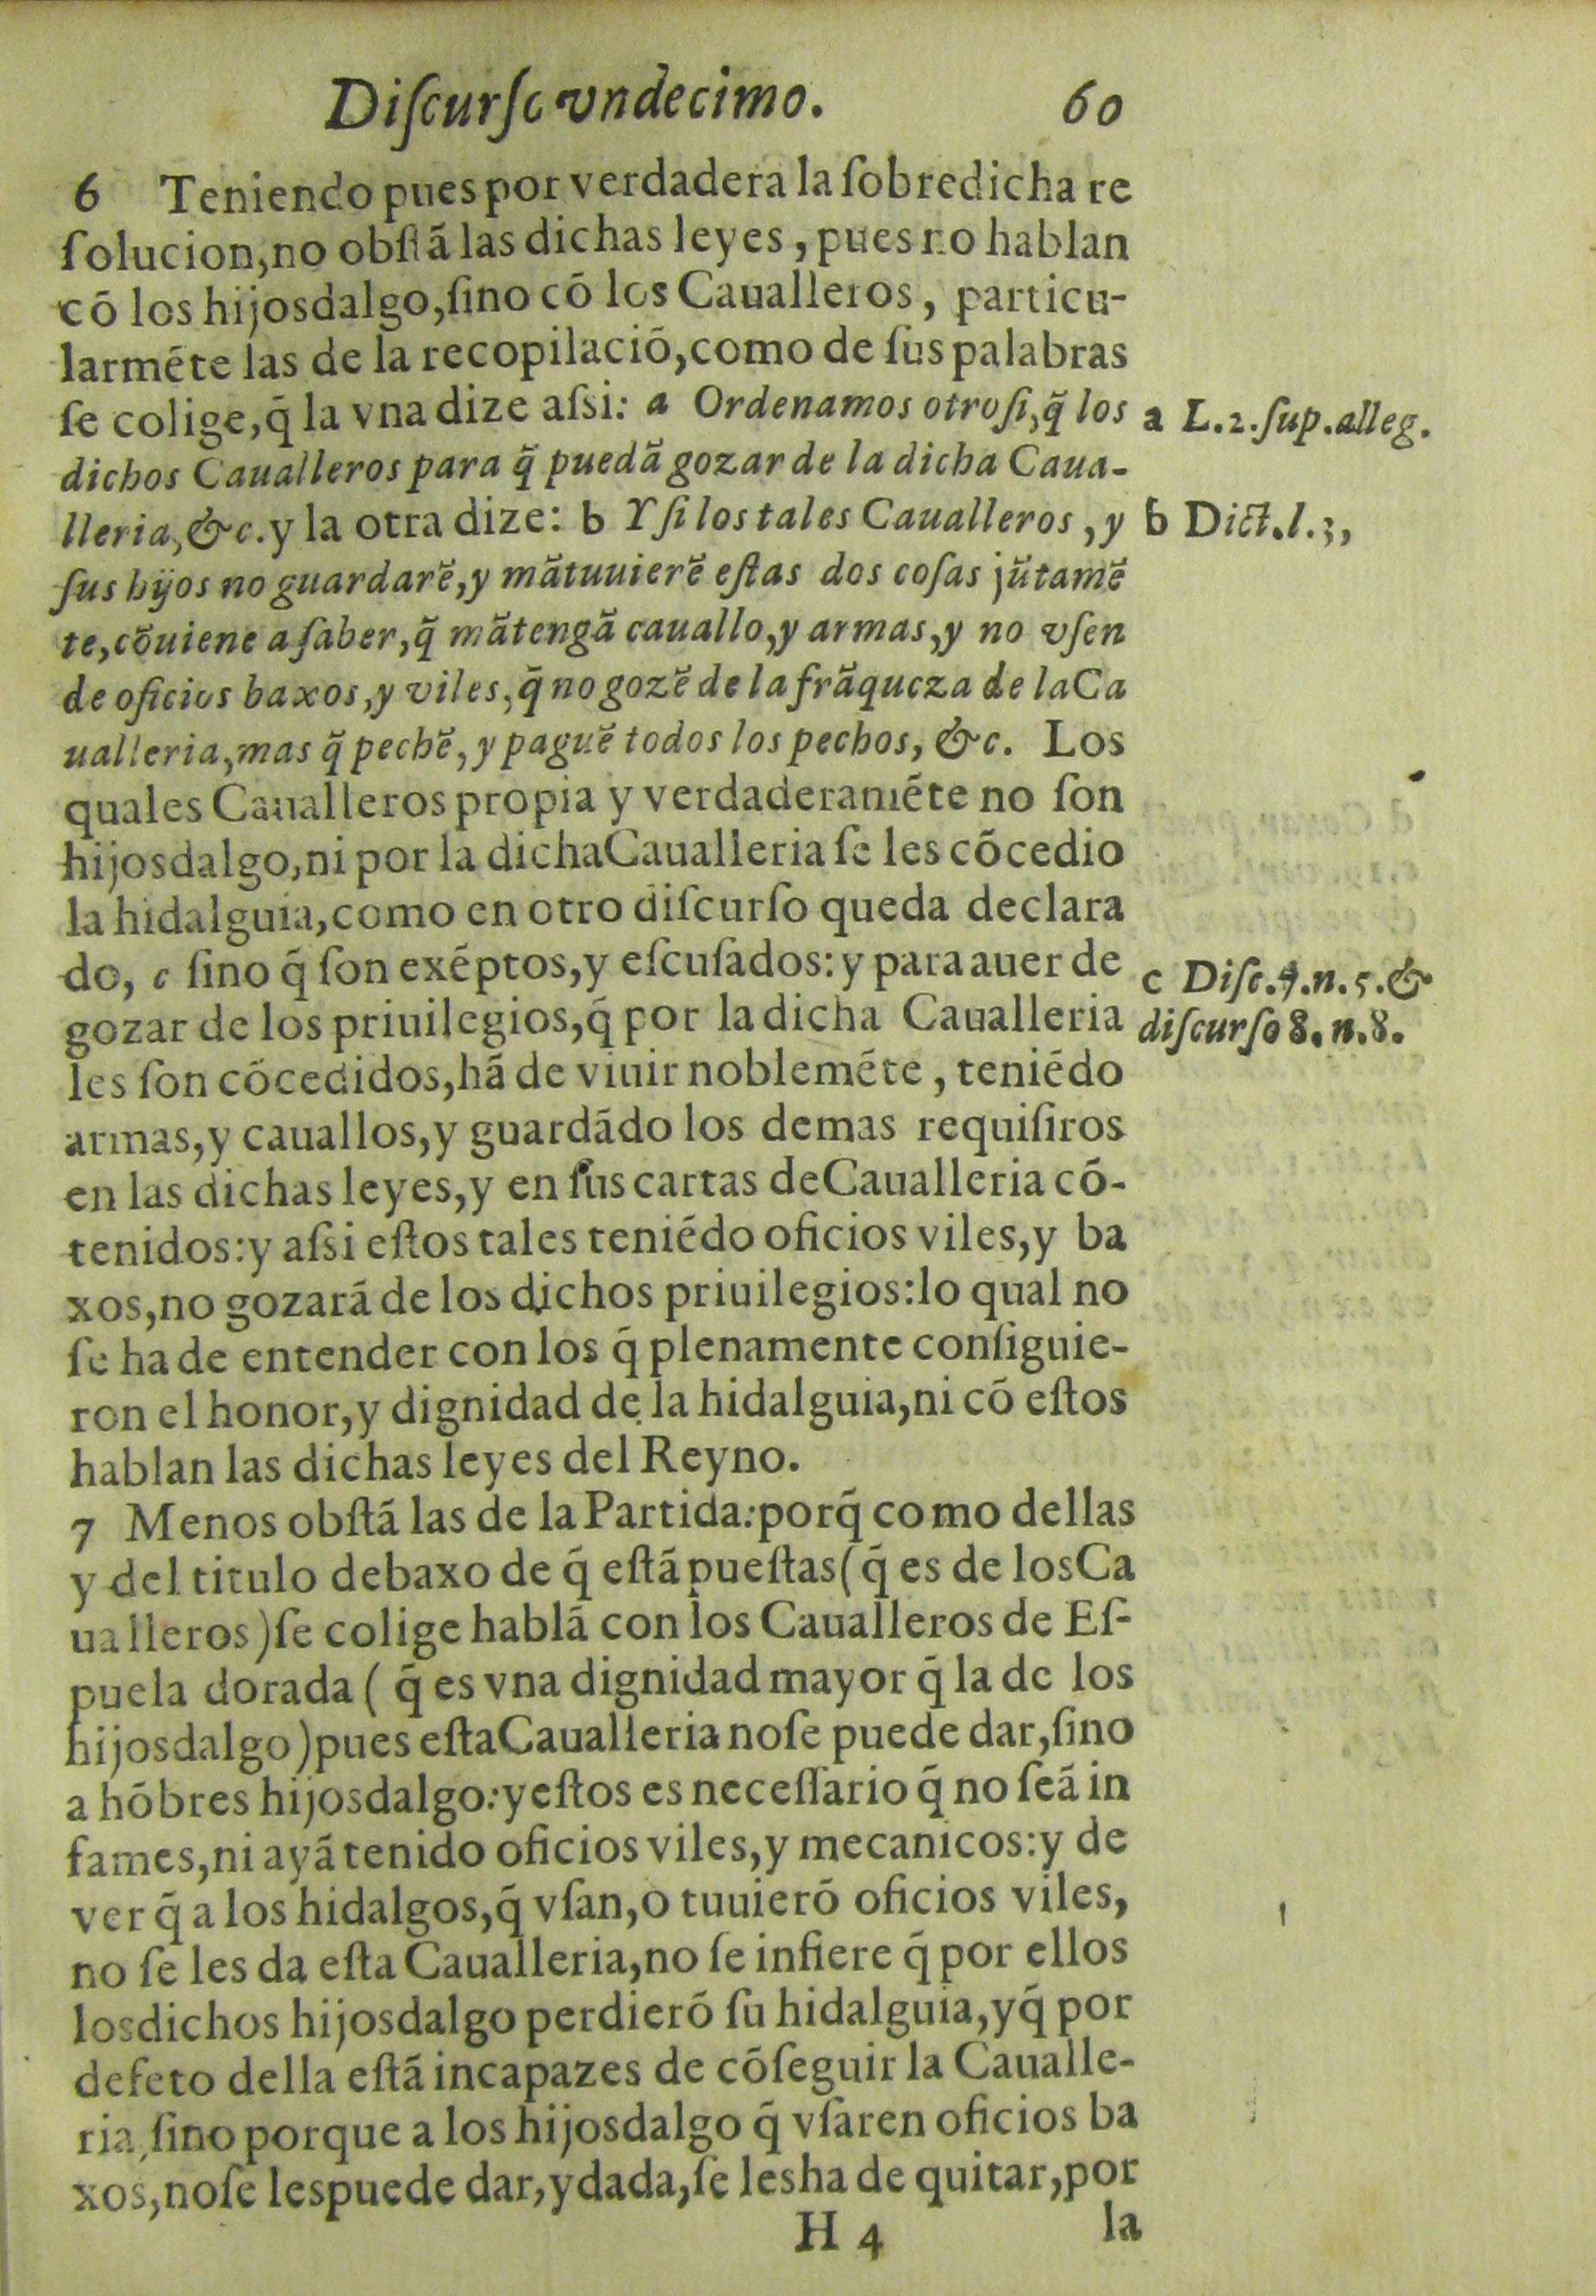 Diſcurſo vndecimo. 60
6 Teniendo pues por verdadera la ſobredicha re
ſolucion,no obſtã las dichas leyes, pues no hablan
cõ los hijosdalgo,ſino cõ los Caualleros, particu-
larmẽte las de la recopilaciõ,como de ſus palabras
ſe colige,q̃ la vna dize aſsi: a Ordenamos otroſi,q̃ los
dichos Caualleros para q̃ puedã gozar de la dicha Caua-
lleria,&c.y la otra dize: b Y ſi los tales Caualleros, y
ſus hijos no guardarẽ,y mãtuuierẽ eſtas dos coſas jũtamẽ
te,cõuiene a ſaber,q̃ mãtengã cauallo,y armas,y no vſen
de oficios baxos,y viles,q̃ no gozẽ de la frãqueza de la Ca
ualleria,mas q̃ pechẽ,y paguẽ todos los pechos, &c. Los
quales Caualleros propia y verdaderamẽte no ſon
hijosdalgo,ni por la dicha Caualleria ſe les cõcedio
la hidalguia,como en otro diſcurſo queda declara
do, c ſino q̃ ſon exẽptos,y eſcuſados: y para auer de
gozar de los priuilegios,q̃ por la dicha Caualleria
les ſon cõcedidos,hã de viuir noblemẽte, teniẽdo
armas,y cauallos,y guardãdo los demas requiſiros
en las dichas leyes,y en ſus cartas de Caualleria cõ-
tenidos:y aſsi eſtos tales teniẽdo oficios viles,y ba
xos,no gozarã de los dichos priuilegios:lo qual no
ſe ha de entender con los q̃ plenamente conſiguie-
ron el honor,y dignidad de la hidalguia,ni cõ eſtos
hablan las dichas leyes del Reyno.
7 Menos obſtã las de la Partida:porq̃ como dellas
y del titulo debaxo de q̃ eſtã pueſtas(q̃ es de los Ca
ualleros)ſe colige hablã con los Caualleros de Eſ-
puela dorada ( q̃ es vna dignidad mayor q̃ la de los
hijosdalgo)pues eſta Caualleria no ſe puede dar,ſino
a hõbres hijosdalgo:y eſtos es neceſſario q̃ no ſeã in
fames,ni ayã tenido oficios viles,y mecanicos:y de
ver q̃ a los hidalgos,q̃ vſan,o tuuierõ oficios viles,
no ſe les da eſta Caualleria,no ſe infiere q̃ por ellos
los dichos hijosdalgo perdierõ ſu hidalguia,y q̃ por
defeto della eſtã incapazes de cõſeguir la Caualle-
ria,ſino porque a los hijosdalgo q̃ vſaren oficios ba
xos,no ſe les puede dar,y dada,ſe les ha de quitar,por
H 4 la
a L.2.ſup.alleg.
b Dict.l.3,
c Diſc. .n.5.&
diſcurſo 8.n.8.